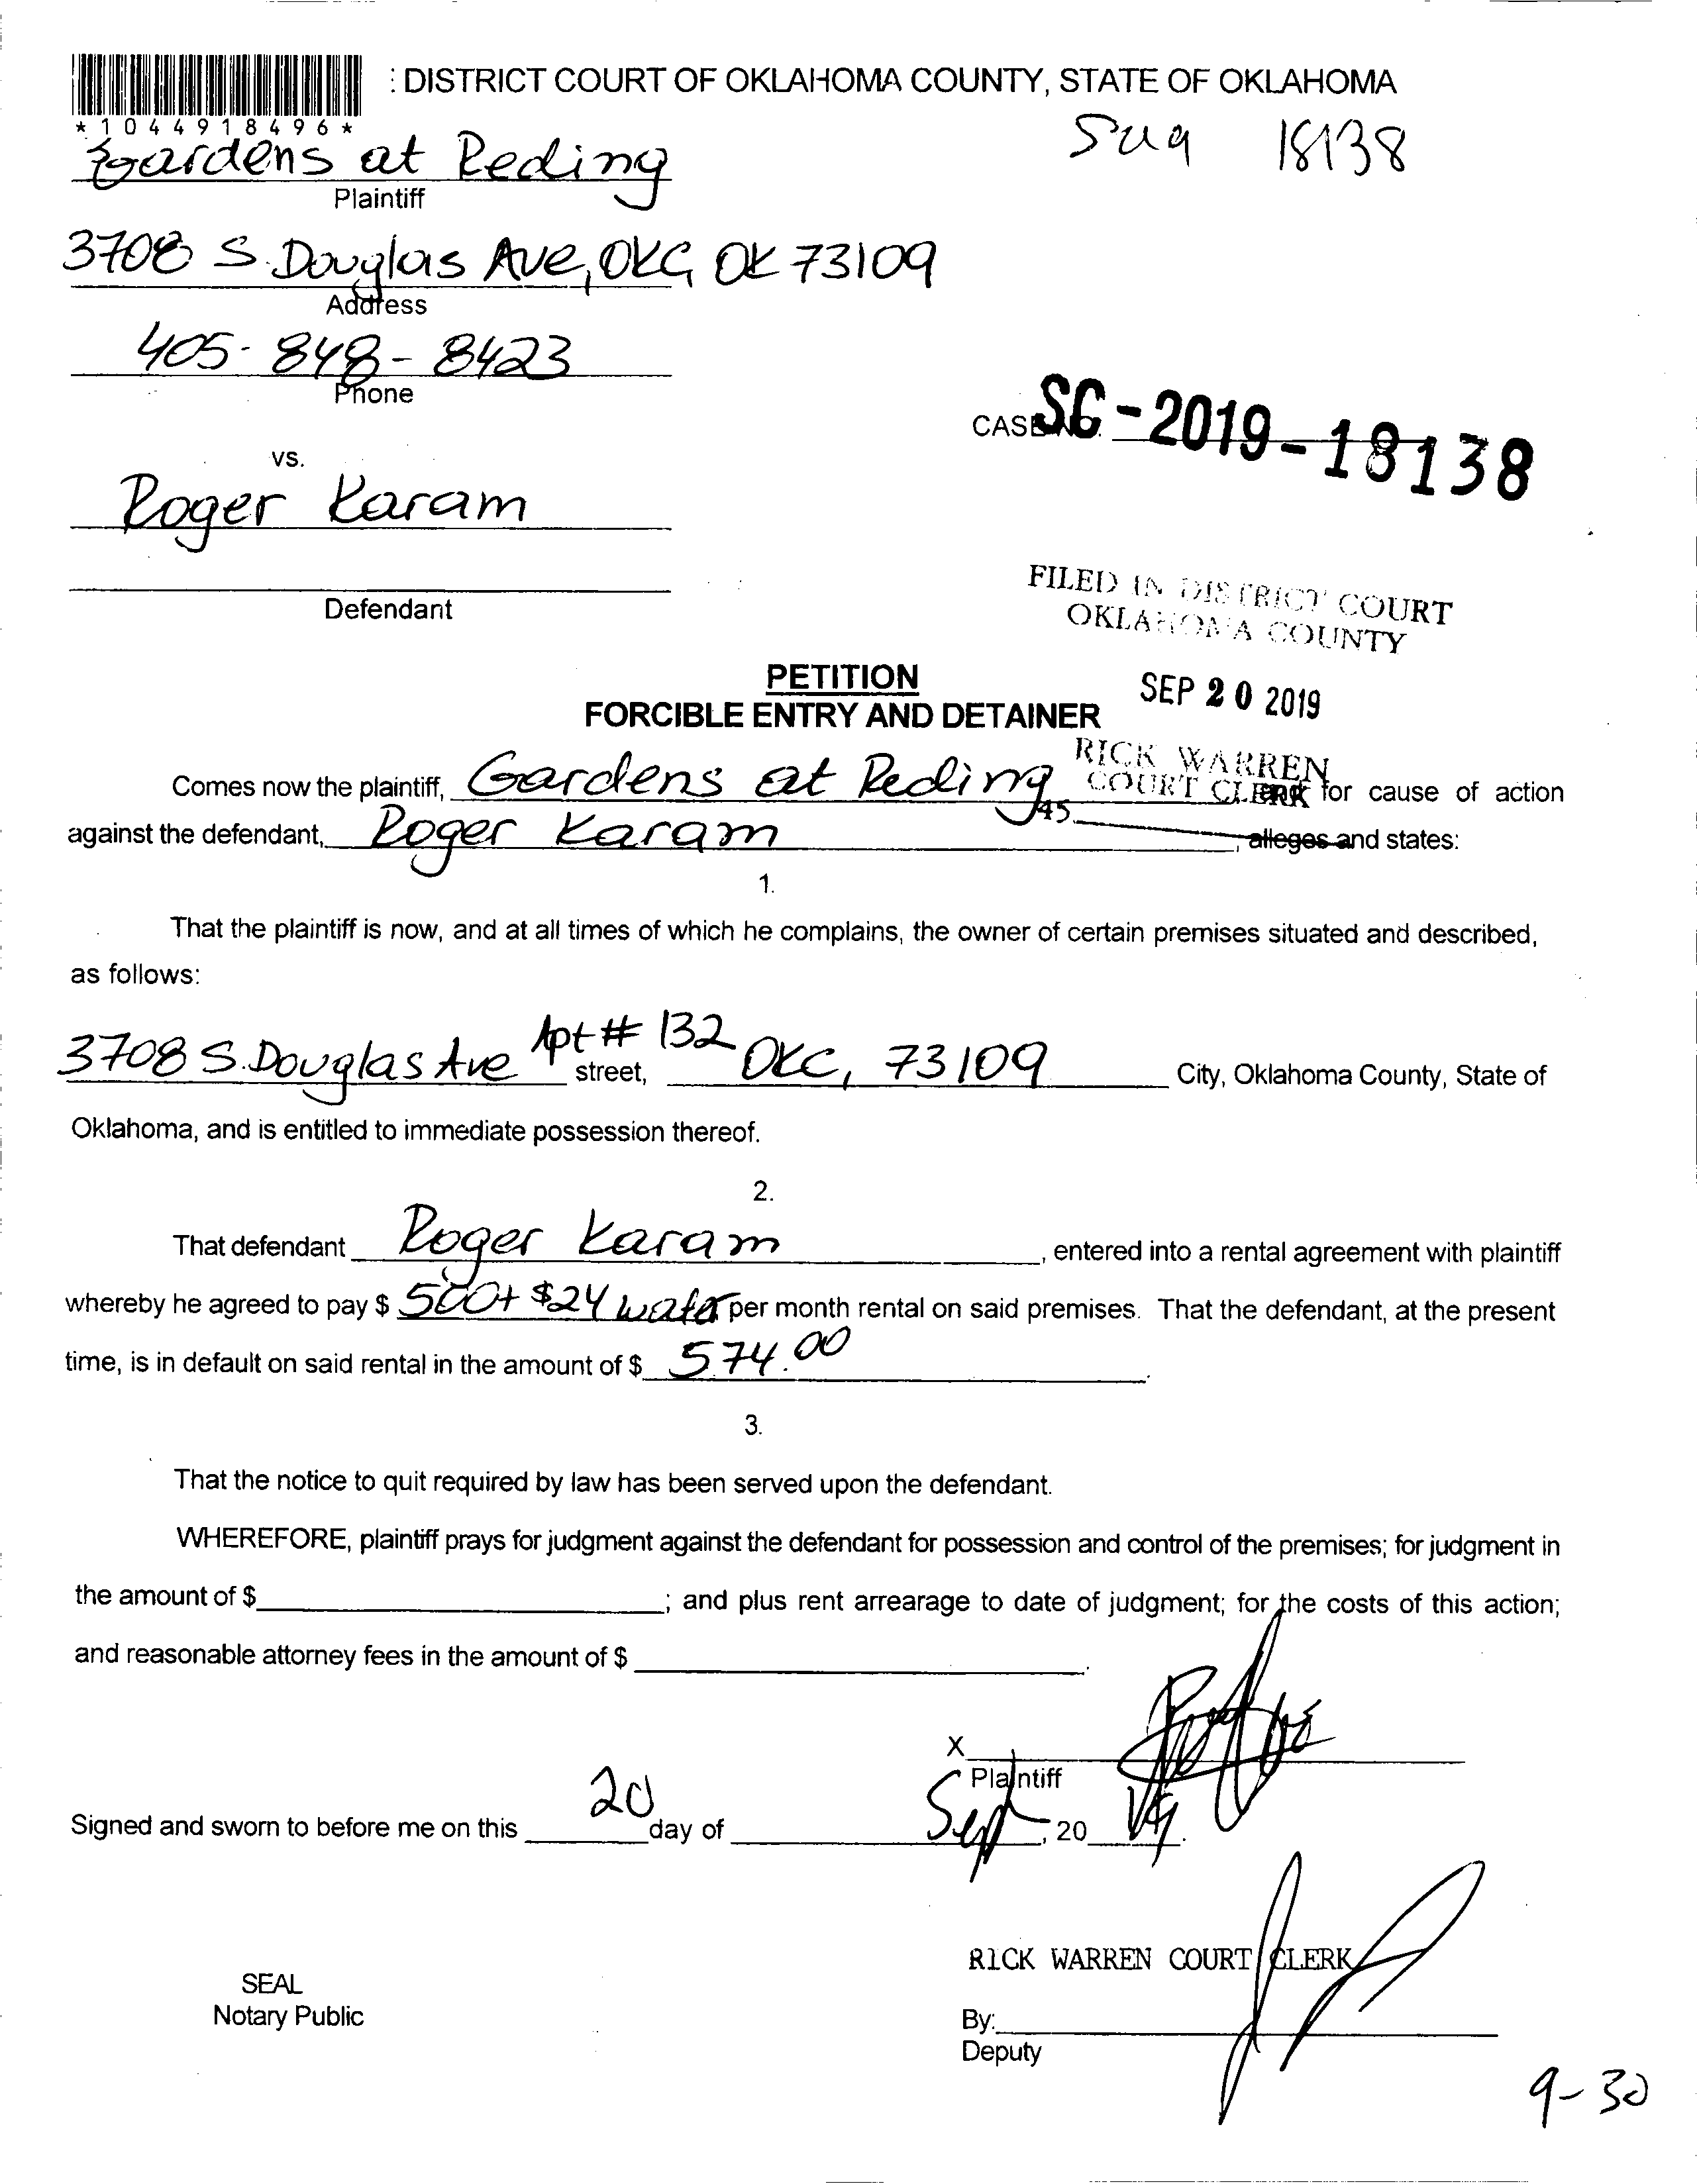 : DISTRICT COURT OF OKLAHOMA COUNTY, STATE OF OKLAHOMA
*1044918496*
Gardens at Reding
18138
Plaintiff
3708 S. Douglas Ave, OKC, OK 73109
Address
405-848-8423
Phone
CASE NO. SC-2019-18138
vs.
Roger Karam
Defendant
FILED IN DISTRICT COURT
OKLAHOMA COUNTY
PETITION
SEP 20 2019
FORCIBLE ENTRY AND DETAINER
RICK WARREN
COURT CLERK
Comes now the plaintiff, Gardens at Reding for cause of action
45
against the defendant, Roger Karam, alleges and states:
1.
That the plaintiff is now, and at all times of which he complains, the owner of certain premises situated and described,
as follows:
3708 S. Douglas Ave Apt # 132 street, OKC, 73109 City, Oklahoma County, State of
Oklahoma, and is entitled to immediate possession thereof.
2.
That defendant Roger Karam, entered into a rental agreement with plaintiff
whereby he agreed to pay $ 500+ $24 water per month rental on said premises. That the defendant, at the present
time, is in default on said rental in the amount of $ 574.00.
3.
That the notice to quit required by law has been served upon the defendant.
WHEREFORE, plaintiff prays for judgment against the defendant for possession and control of the premises; for judgment in
the amount of $; and plus rent arrearage to date of judgment; for the costs of this action;
and reasonable attorney fees in the amount of $.
X
Plaintiff
Signed and sworn to before me on this 20 day of Sept, 20 19.
RICK WARREN COURT CLERK
SEAL
Notary Public
By:
Deputy
9-30